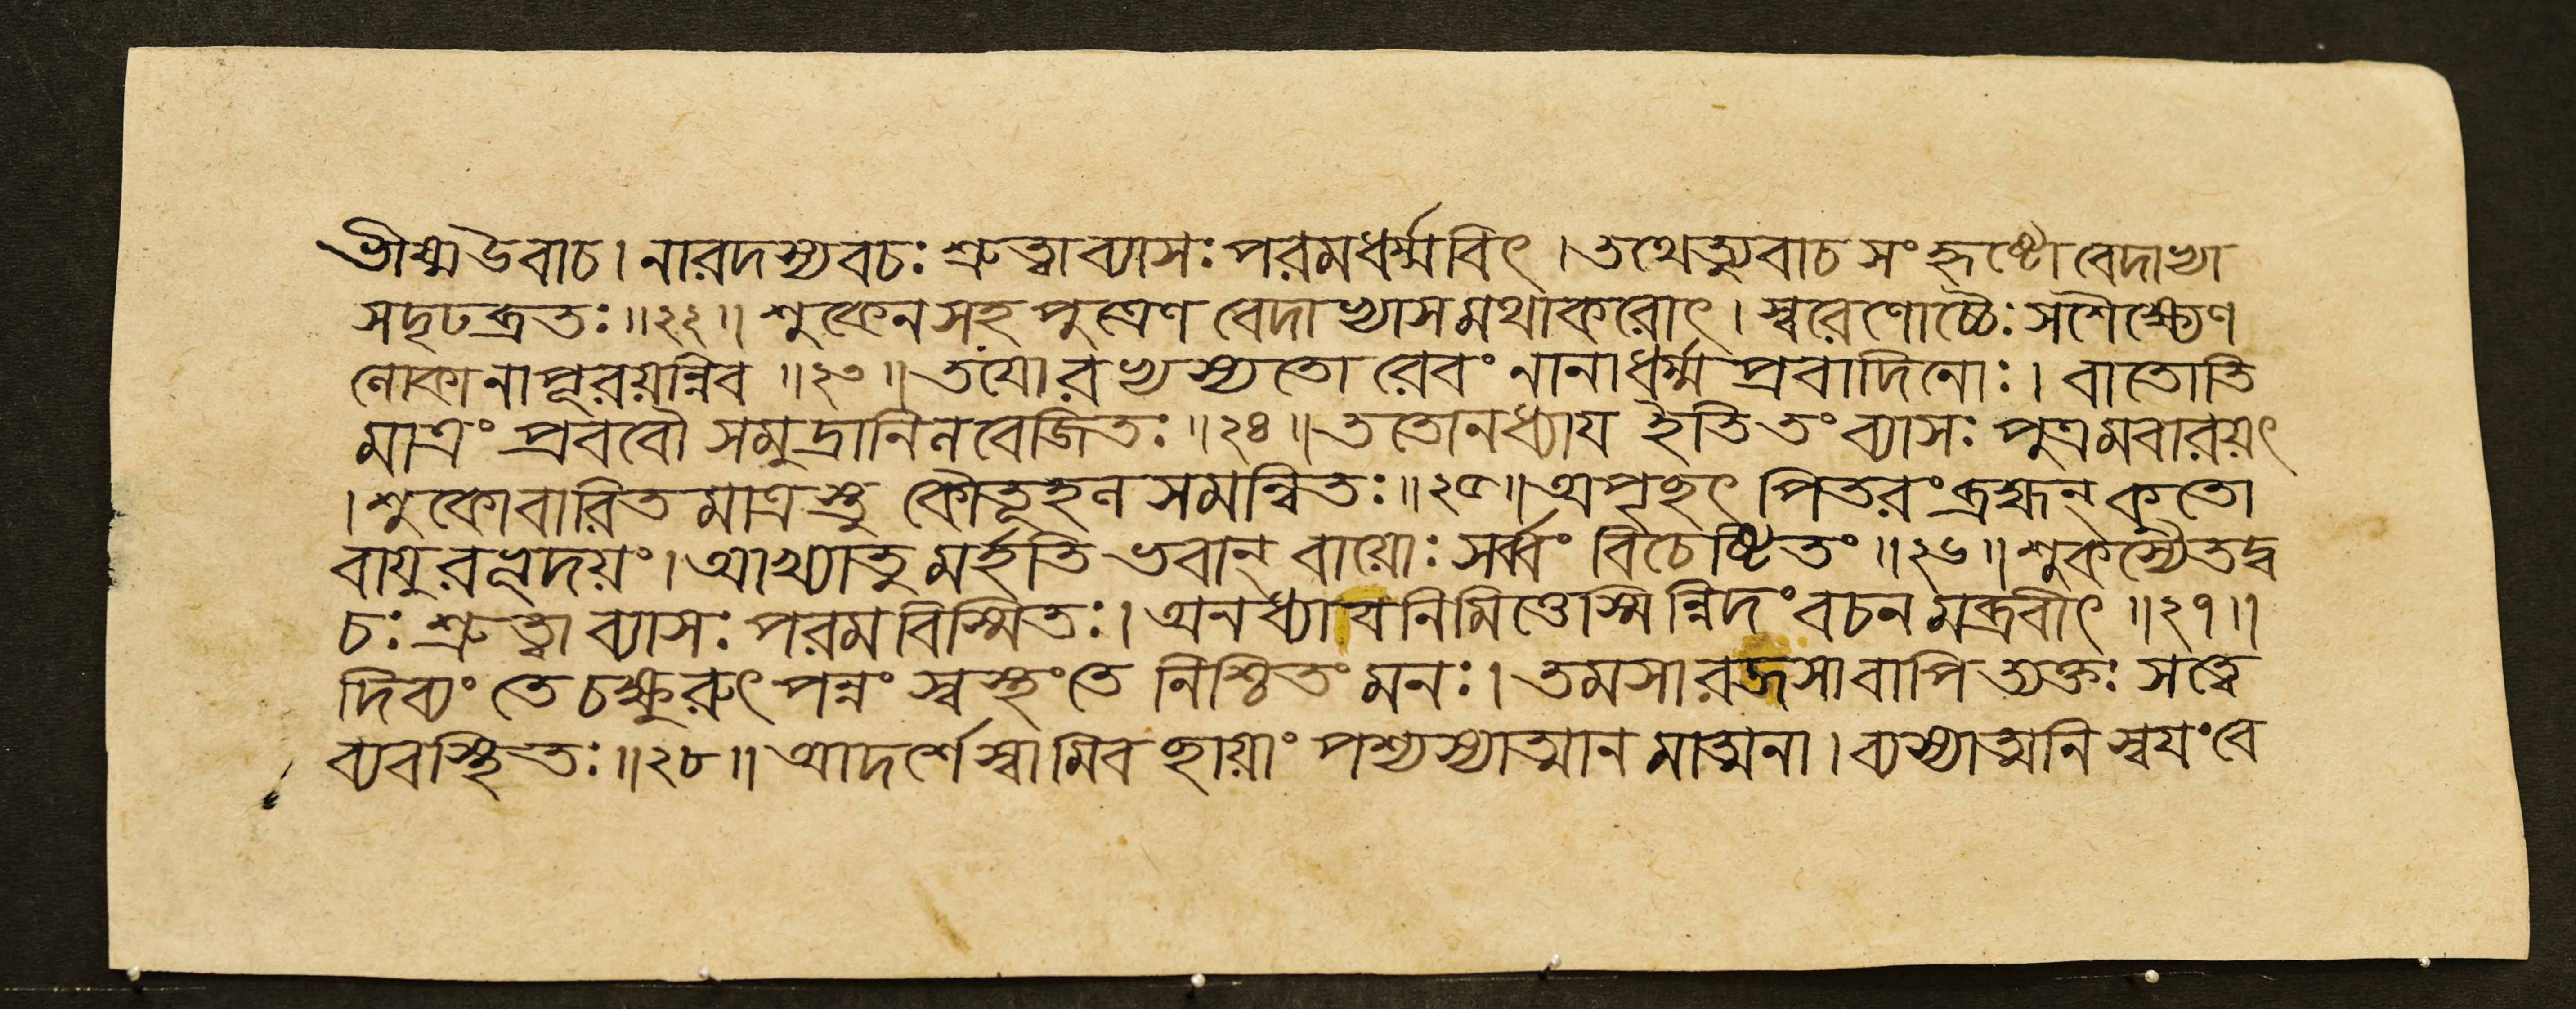 ভীষ্ম উবাচ। নারদস্য বচঃ শ্রুত্বা ব্যাসঃ পরমধর্ম্মবিৎ। তথেত্যুবাচ সংহৃষ্টো বেদাভ্যা
সদৃঢব্রতঃ॥২২॥ শুকেন সহ পুত্রেণ বেদাভ্যাসমথাকরোৎ। স্বরেণোচ্চৈঃ সশৈক্ষ্যেণ
লোকানাপূরয়ন্নিব॥২৩॥ তয়োরভ্যস্যতোরেবং নানাধর্ম্মপ্রবাদিনোঃ। বাতোতি
মাত্রং প্রববৌ সমুদ্রানিলবেজিতঃ॥২৪॥ ততোনধ্যায ইতি তং ব্যাসঃ পুত্রমবারয়ৎ
। শুকো বারিতমাত্রস্তু কৌতূহলসমন্বিতঃ॥২৫॥ অপৃচ্ছৎ পিতরং ব্রহ্মন্ কুতো
বাযুরভূদয়ং। আখ্যাতুমর্হতি ভবান্ বায়োঃ সর্ব্বং বিচেষ্টিতং॥২৬॥ শুকস্যৈতদ্ব
চঃ শ্রুত্বা ব্যাসঃ পরমবিস্মিতঃ। অনধ্যাযনিমিত্তেস্মিন্নিদং বচনমব্রবীৎ॥২৭॥
দিব্যং তে চক্ষুরুৎপন্নং স্বস্থং তে নিশ্চিতং মনঃ। তমসা রজসা বাপি ত্যক্তঃ সত্ত্বে
ব্যবস্থিতঃ॥২৮॥ আদর্শে স্বামিব ছায়াং পশ্যস্যাত্মানমাত্মনা। ব্যস্যাত্মনি স্বযং বে